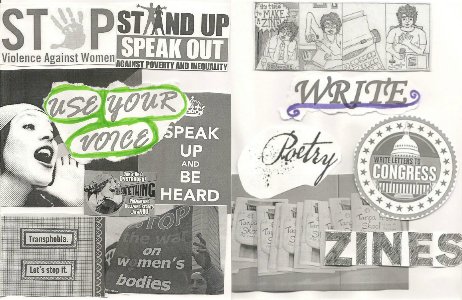 STOP
Violence Against Women
STAND UP
SPEAK OUT
AGAINST POVERTY AND INEQUALITY
USE YOUR
VOICE
SPEAK
UP
AND
BE
HEARD
Transphobia.
Let's stop it.
STOP
the war
on
women's
bodies
MAKE
ZINES
WRITE
Poetry
WRITE LETTERS TO
CONGRESS
ZINES